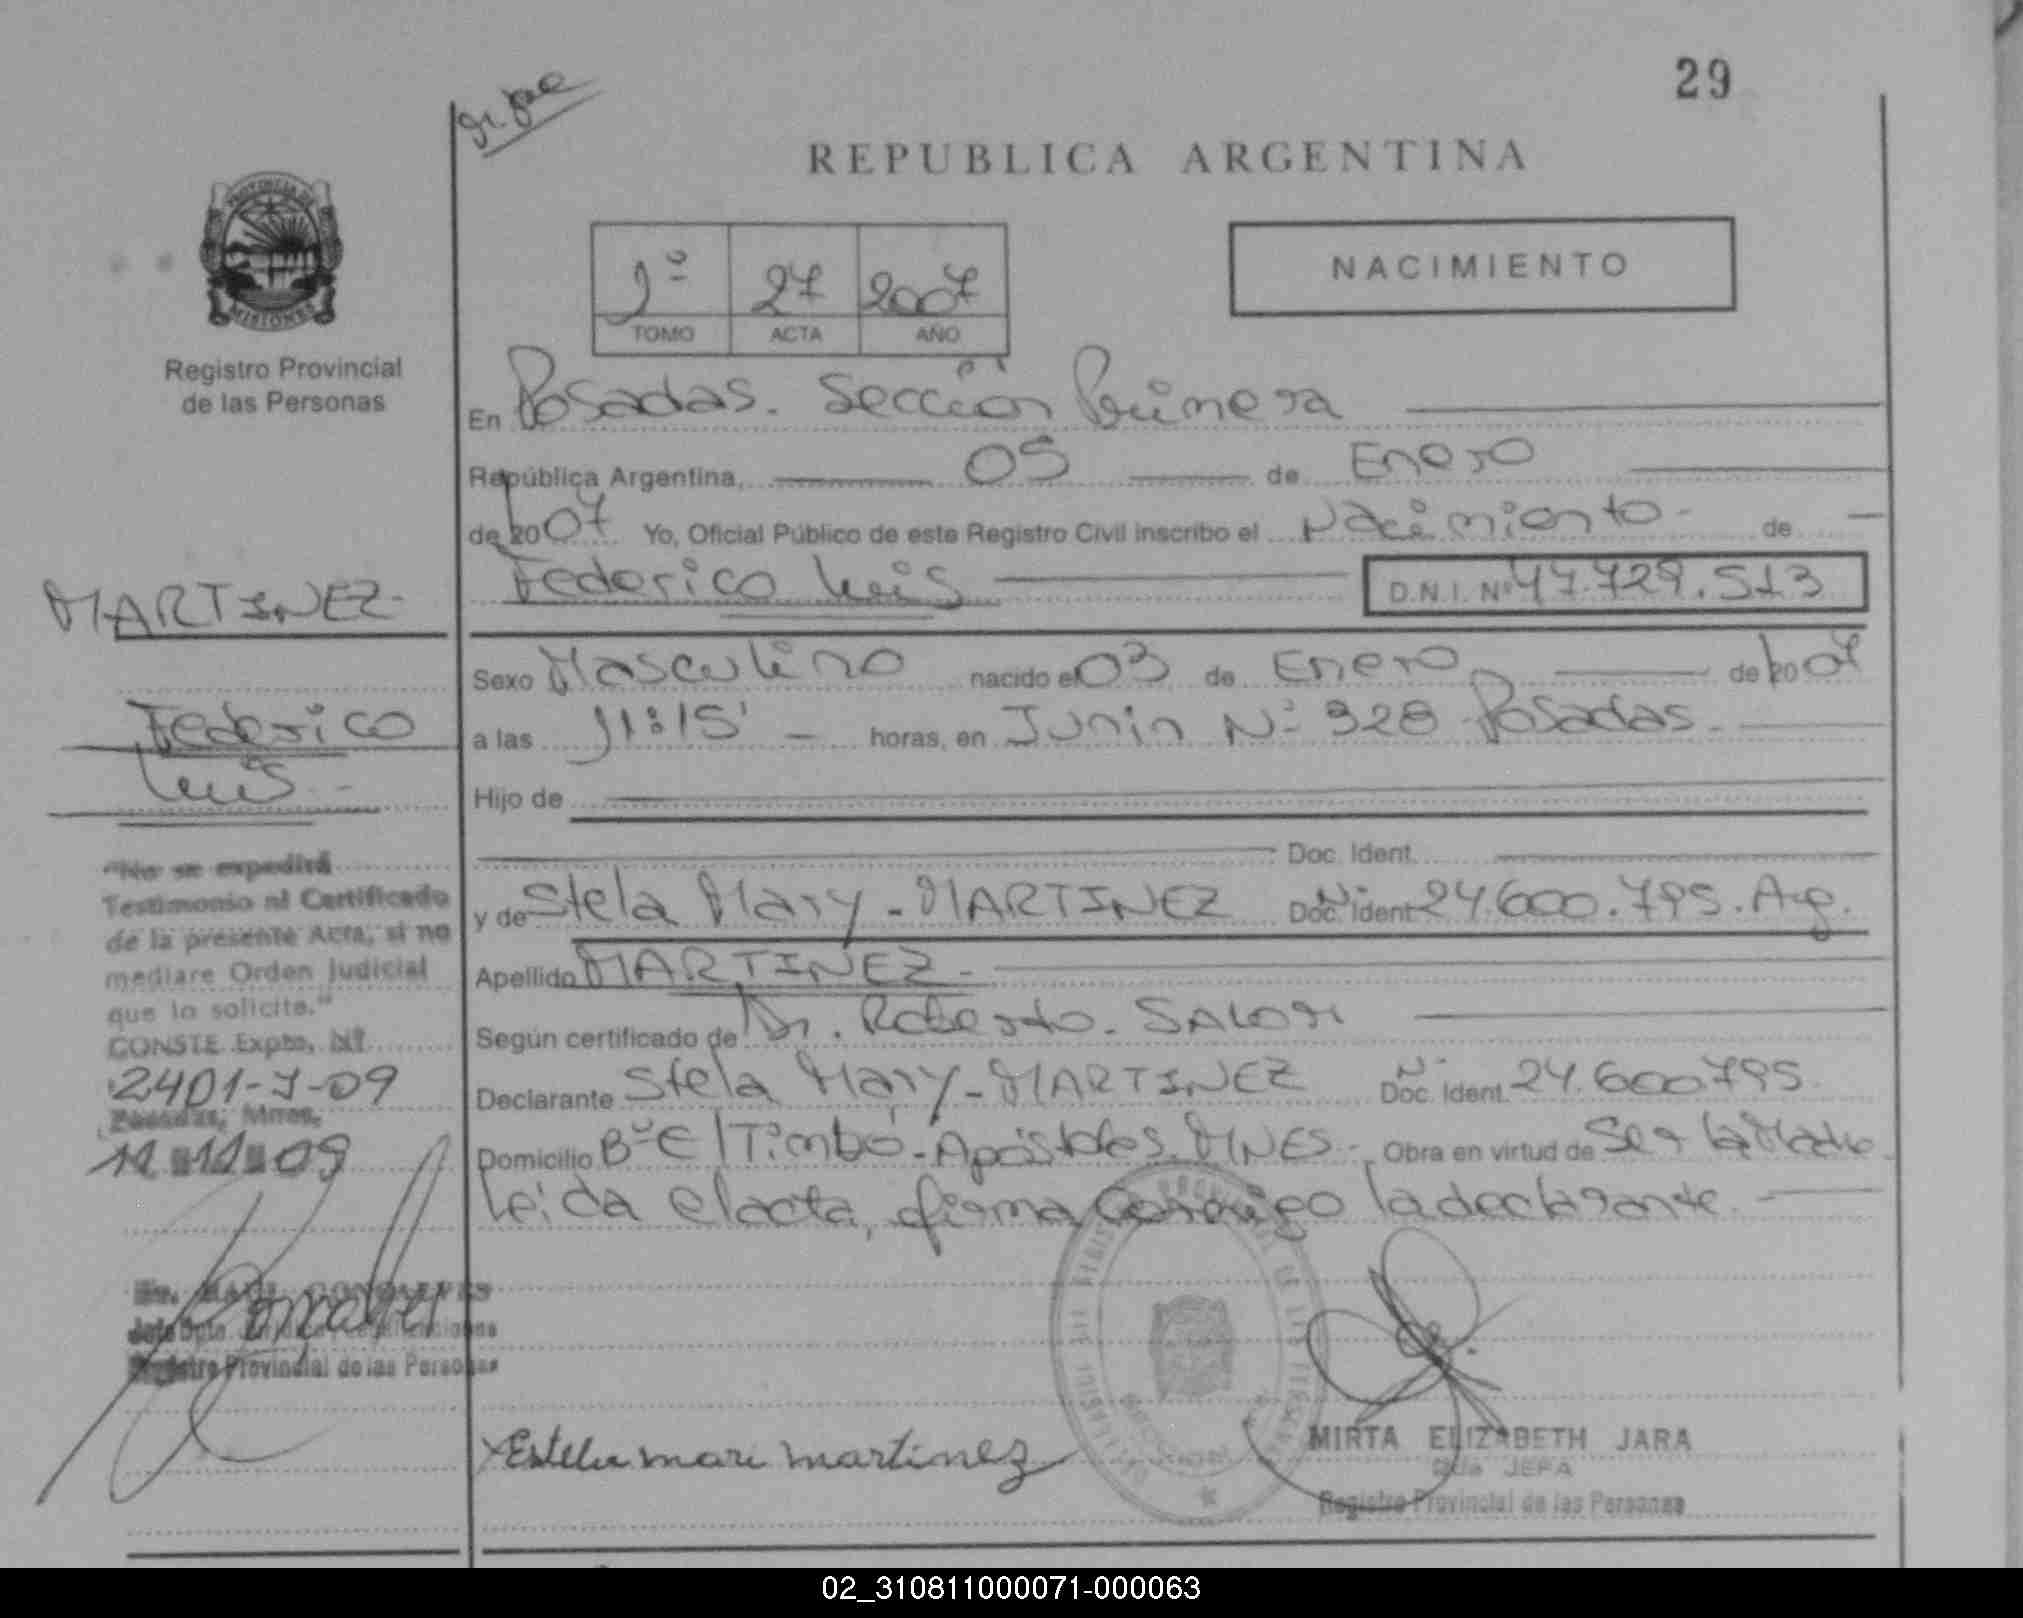 29
REPUBLICA ARGENTINA
PROVINCIA DE
MISIONES
1º 27 2007
TOMO ACTA AÑO
NACIMIENTO
Registro Provincial
de las Personas
En Posadas. Sección Primera
República Argentina, 05 de Enero
de 2007 Yo, Oficial Público de este Registro Civil inscribo el Nacimiento - de
Federico Luis D.N.I. Nº 47.729.513
MARTINEZ
Federico
Luis -
Sexo Masculino nacido el 03 de Enero de 2007
a las 11:15' - horas, en Junin Nº 928 Posadas.
Hijo de
Doc. Ident.
y de Stela Mary - MARTINEZ Doc. Ident. Nº 24.600.795. Arg.
Apellido MARTINEZ -
Según certificado de Dr. Roberto - SALOM
Declarante Stela Mary - MARTINEZ Doc. Ident. Nº 24.600795
Domicilio Bº El Timbó - Apóstoles. MNES - Obra en virtud de Ser la Madre
Leida el acta, firma conmigo la declarante -
"No se expedirá
Testimonio ni Certificado
de la presente Acta, si no
mediare Orden Judicial
que lo solicite."
CONSTE Expto. Nº
2401-J-09
Posadas, Mnes,
11 11 09
Jefe Dpto.
Registro Provincial de las Personas
Estela mari martinez
MIRTA ELIZABETH JARA
JEFA
Registro Provincial de las Personas
02_310811000071-000063